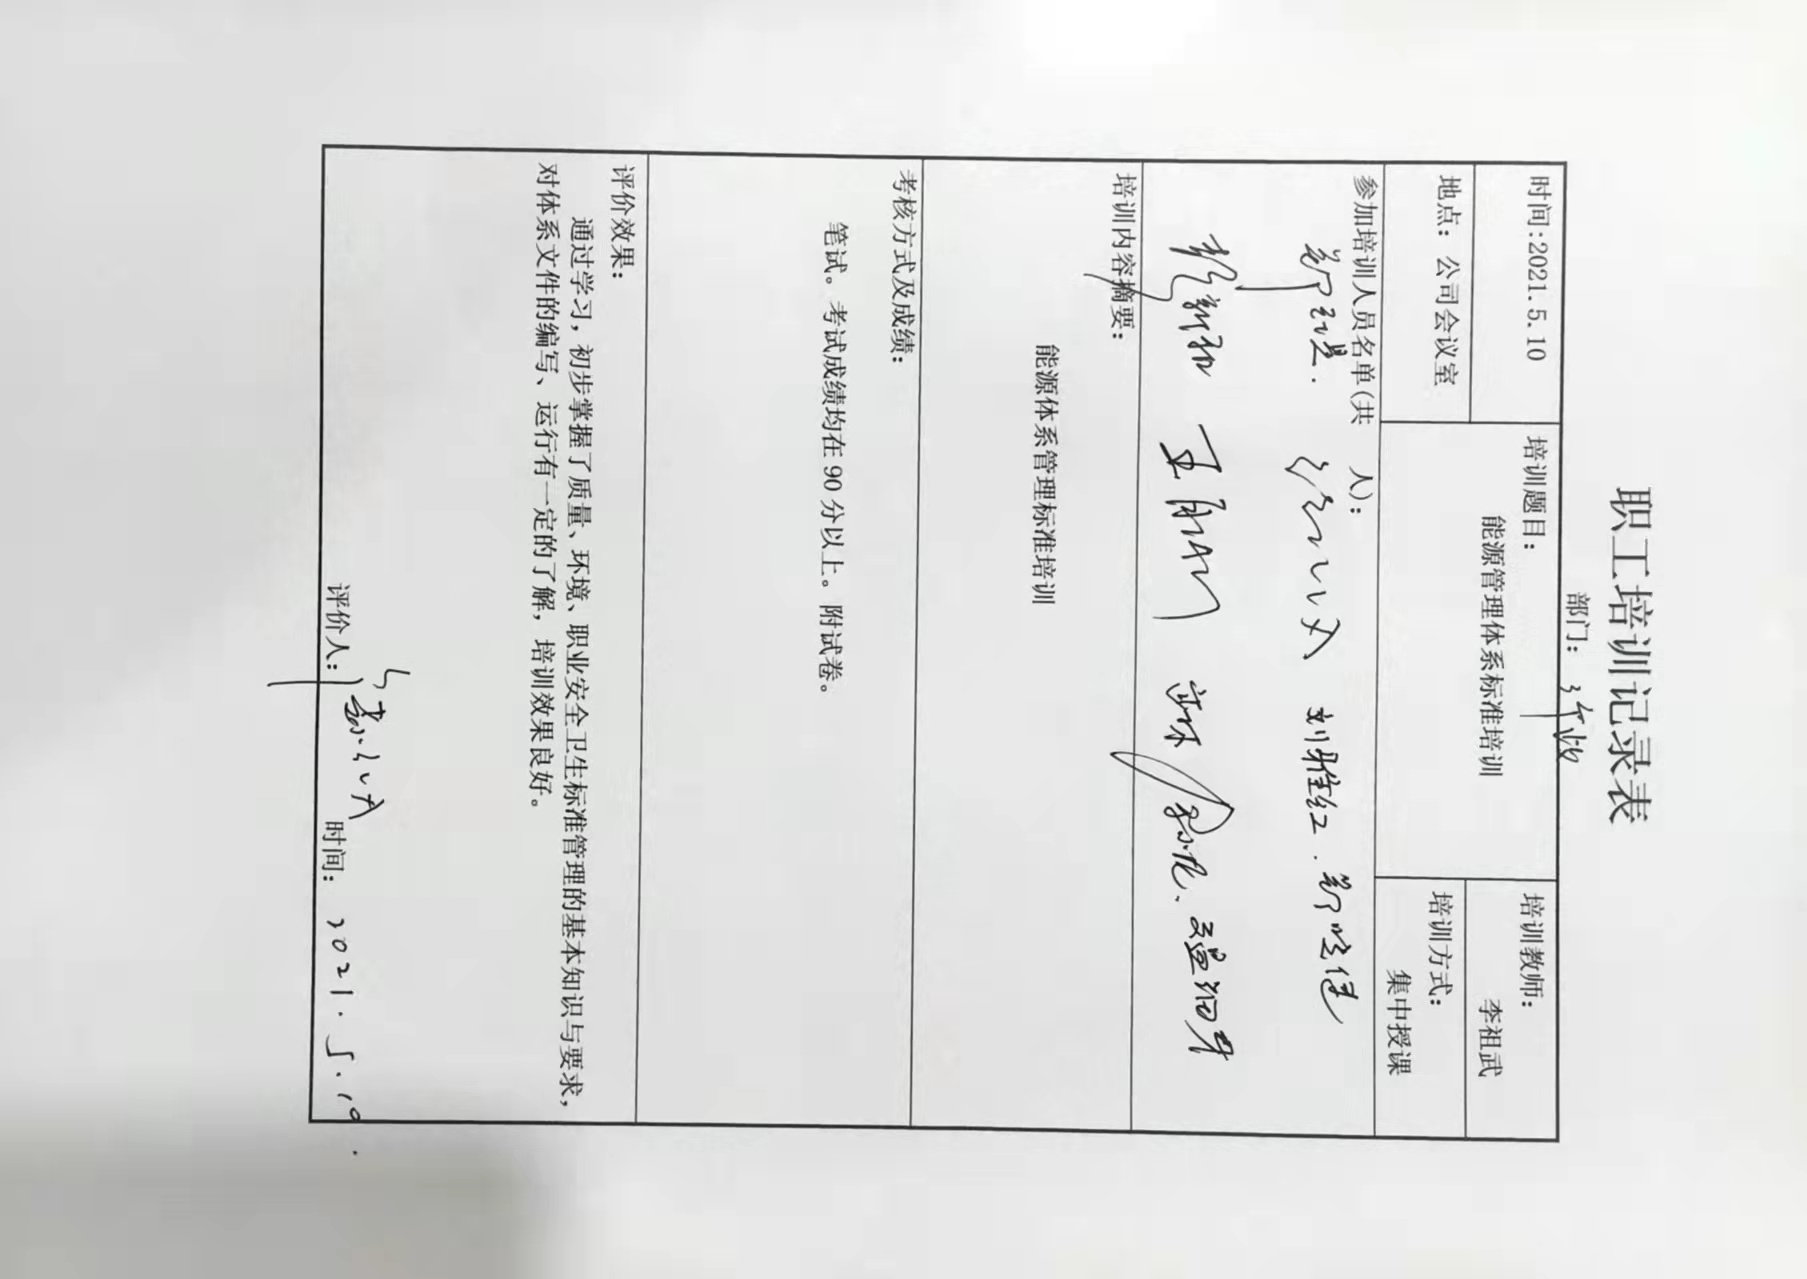 职工培训记录表
部门：
时间:2021.5.10
培训题目：
能源管理体系标准培训
培训教师：
李祖武
地点：公司会议室
培训方式：
集中授课
参加培训人员名单(共 人)：
刘雅红
培训内容摘要：
能源体系管理标准培训
考核方式及成绩：
笔试。考试成绩均在 90 分以上。附试卷。
评价效果：
通过学习，初步掌握了质量、环境、职业安全卫生标准管理的基本知识与要求，
对体系文件的编写、运行有一定的了解，培训效果良好。
评价人： 时间： 2021.5.10.